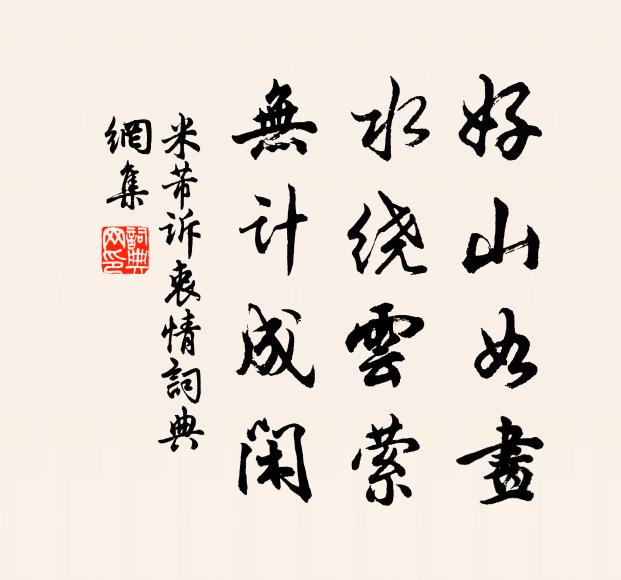 好山如畫
水绕雲萦
無计成闲
米芾诉衷情詞典
網集
詞典
网印